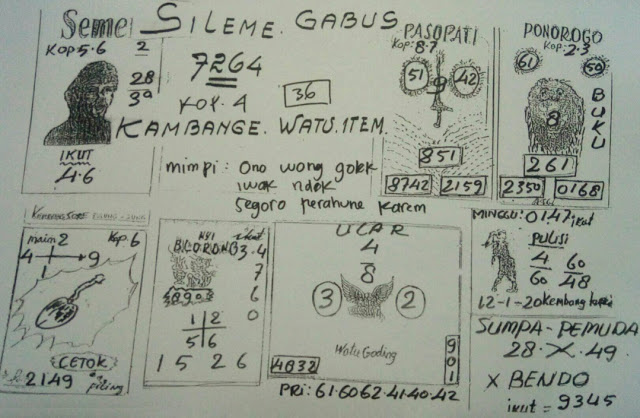 Semei
KOP 5.6
2
28
39
IKUT
4.6
SILEME. GABUS
7264
KOP. 4
36
KAMBANGE. WATU. ITEM.
mimpi : Ono wong golek
iwak ndek
segoro perahune karem
PASOPATI
KOP: 8.7
51
42
9
851
8742
2159
PONOROGO
KOP: 2.3
61
50
8
BUKU
261
2350
0168
main 2
KOP. 6
4
9
1
CETOK
2149
NYI
BLORONG
ikut
3.4
7
6
0
1 2
5 6
1 5 2 6
ULAR
4
8
3
2
Watu Goding
4832
901
PRI: 61.60 62.41.40.42
MINGGU: 0147 ikut
PULISI
4
60
60
48
12-1-20 kembang kopi
SUMPA-PEMUDA
28.X.49
X BENDO
ikut = 9345